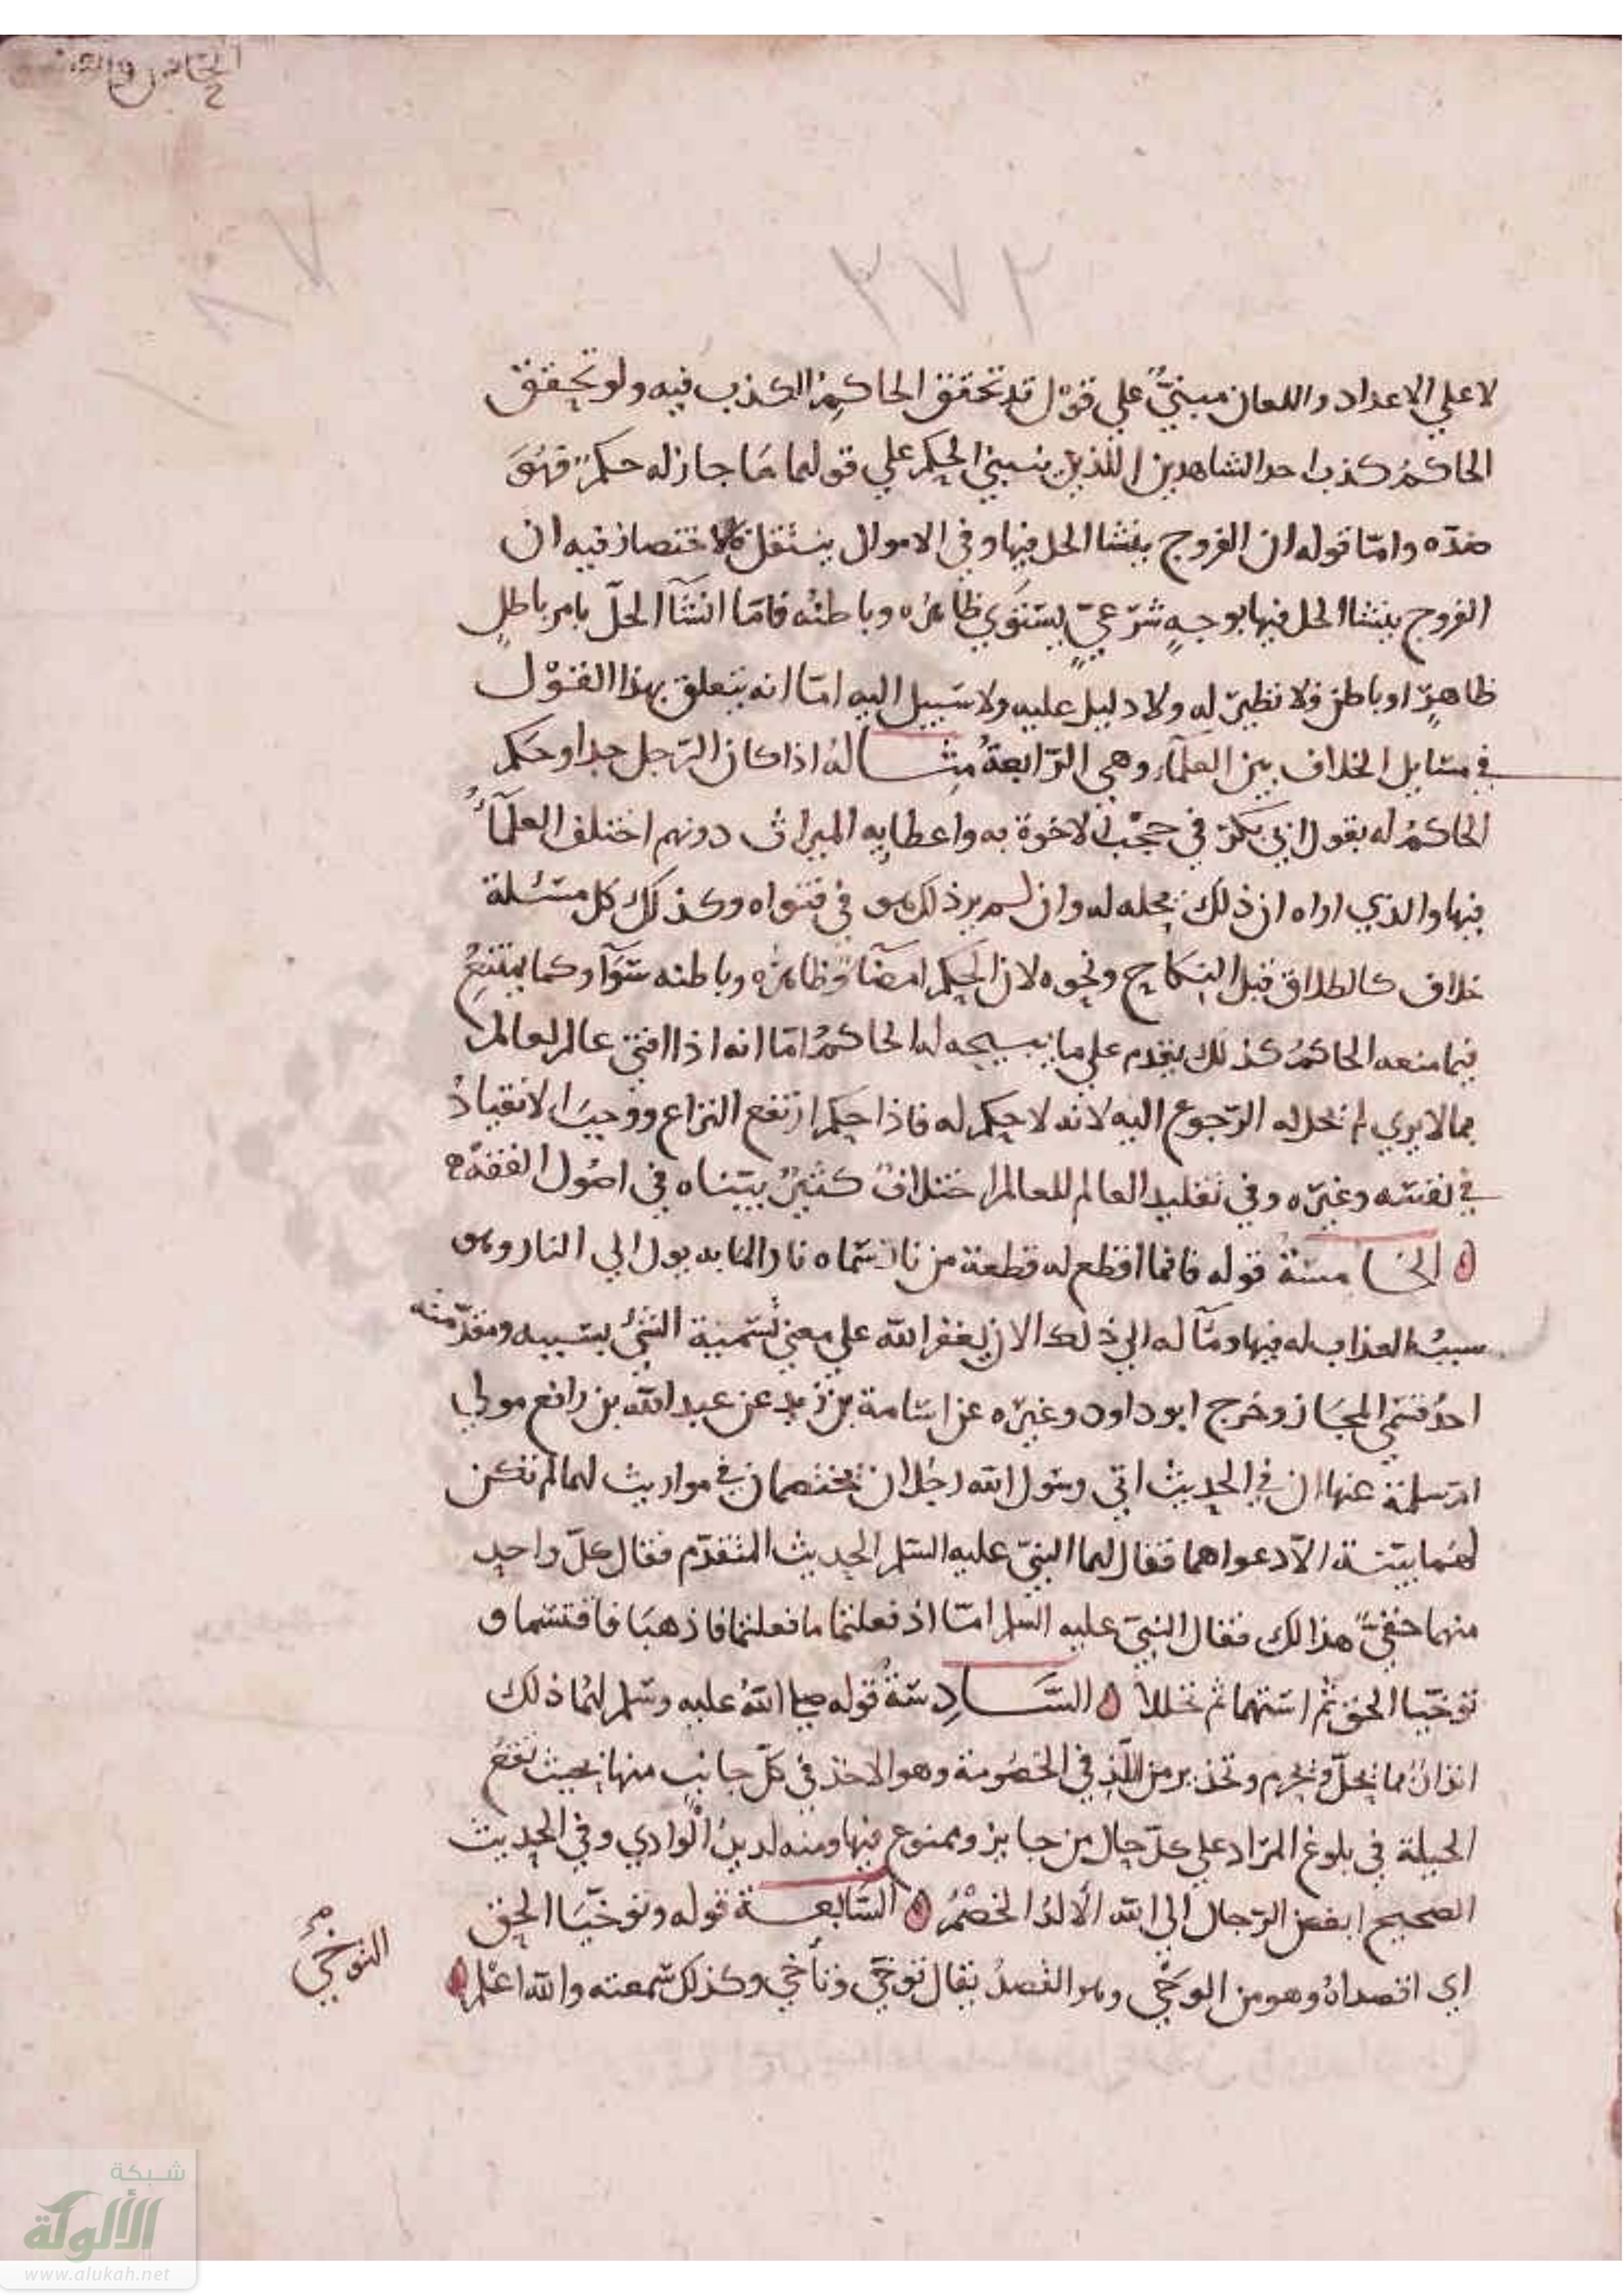 الخامس والتسعين
٢٧٢
٨٧
لا علي الاعداد واللعان مبنيٌّ علي قول قد تحقق الحاكم الكذب فيه ولو تحقق
الحاكمُ كذب احد الشاهدين اللذين ينبني الحكم علي قولهما مَا جاز له حكمٌ فهُوَ
ضدّه وامّا قوله ان الفروج ينشا الحل فيها وفي الاموال ينتقل فيه ان
الفروج ينشا الحل فيها بوجهٍ شرعيٍّ يستوي ظاهرُه وباطنُه فامّا انشآ الحلّ بامر باطلٍ
ظاهرٍ او باطن فلا نظيرَ له ولا دليل عليه ولا سَبيل اليه امّا انه يتعلق بهذا القَوْل
في مسَايل الخلاف بين العلمآء وهي الرّابعةُ مِثَاله اذا كان الرّجل جدا وحكم
الحاكمُ له بقول ابي بكر في حجْب الاخوة به واعطايه الميراث دونهم اختلف العلمآءُ
فيها والذي اراه ان ذلك يحله له وان لم ير ذلك هو في فتواه وكذلك كل مسئلة
خلاف كالطلاق قبل النكاح ونحوه لان الحكم امضآوه ظاهره وباطنه سَوآ وكما يمتنعُ
فيما منعه الحاكمُ كذلك يقدم علي ما يبيحه له الحاكمُ امّا انه اذا افتي عالم لعالم
بما لا يري لم يحل له الرّجوع اليه لانه لا حكم له فاذا حكم ارتفع النزاع ووجبَ الانقيادُ
في نفسه وغيره وفي تقليد العالم للعالم اختلافٌ كثيرٌ بيّناه في اصُول الفقه
الخَامسَةُ قوله فانما اقطع له قطعة من نار سَماه نارا لمابه يول الي النار وهو
سببُ العذاب له فيها ومَآله الي ذلك الا ان يغفر الله علي معني تسمية الشئ بسَببه ومقدّمته
احدُ قسمي المجَاز وخرج ابو داود وغيره عن اسَامة بن زيد عن عبد الله بن رافع مولي
امّ سلمة عنها ان في الحديث اتي رسول الله رجُلان يختصمان في مواريث لهما لم تكن
لهُما بيّنة الّا دعواهما فقال لهما النبيّ عليه السّلم الحديث المتقدّم فقال كلّ واحد
منهما حقيّ هذا لك فقال النبيّ عليه السلم امّا اذ فعلتما ما فعلتما فاذهبَا فاقتسَما و
توخّيا الحق ثم استهما ثم تحللا السَّادِسَةُ قوله صلي اللّهُ عليه وسَلم لهُما ذلك
انذارٌ مما يَحلّ ويحرم وتحذير من اللَّدَد في الخصُومة وهو الاخذ في كلّ جانب منها بحيث تقعُ
الحيلة في بلوغ المرَاد علي كلّ حال من جايز وممنوع فيها ومنه لديدُ الْوادي وفي الحديث
الصحيح ابغض الرّجال الي الله الألدُ الخَصْمُ السَّابعة قوله وتوخّيَا الحق
اي اقصداهُ وهو من الوَخْي وهو القصدُ يقال توخّي وتأخّي وكذلك سَمعته والله اعْلم
التوخي
شبكة
الألوكة
www.alukah.net